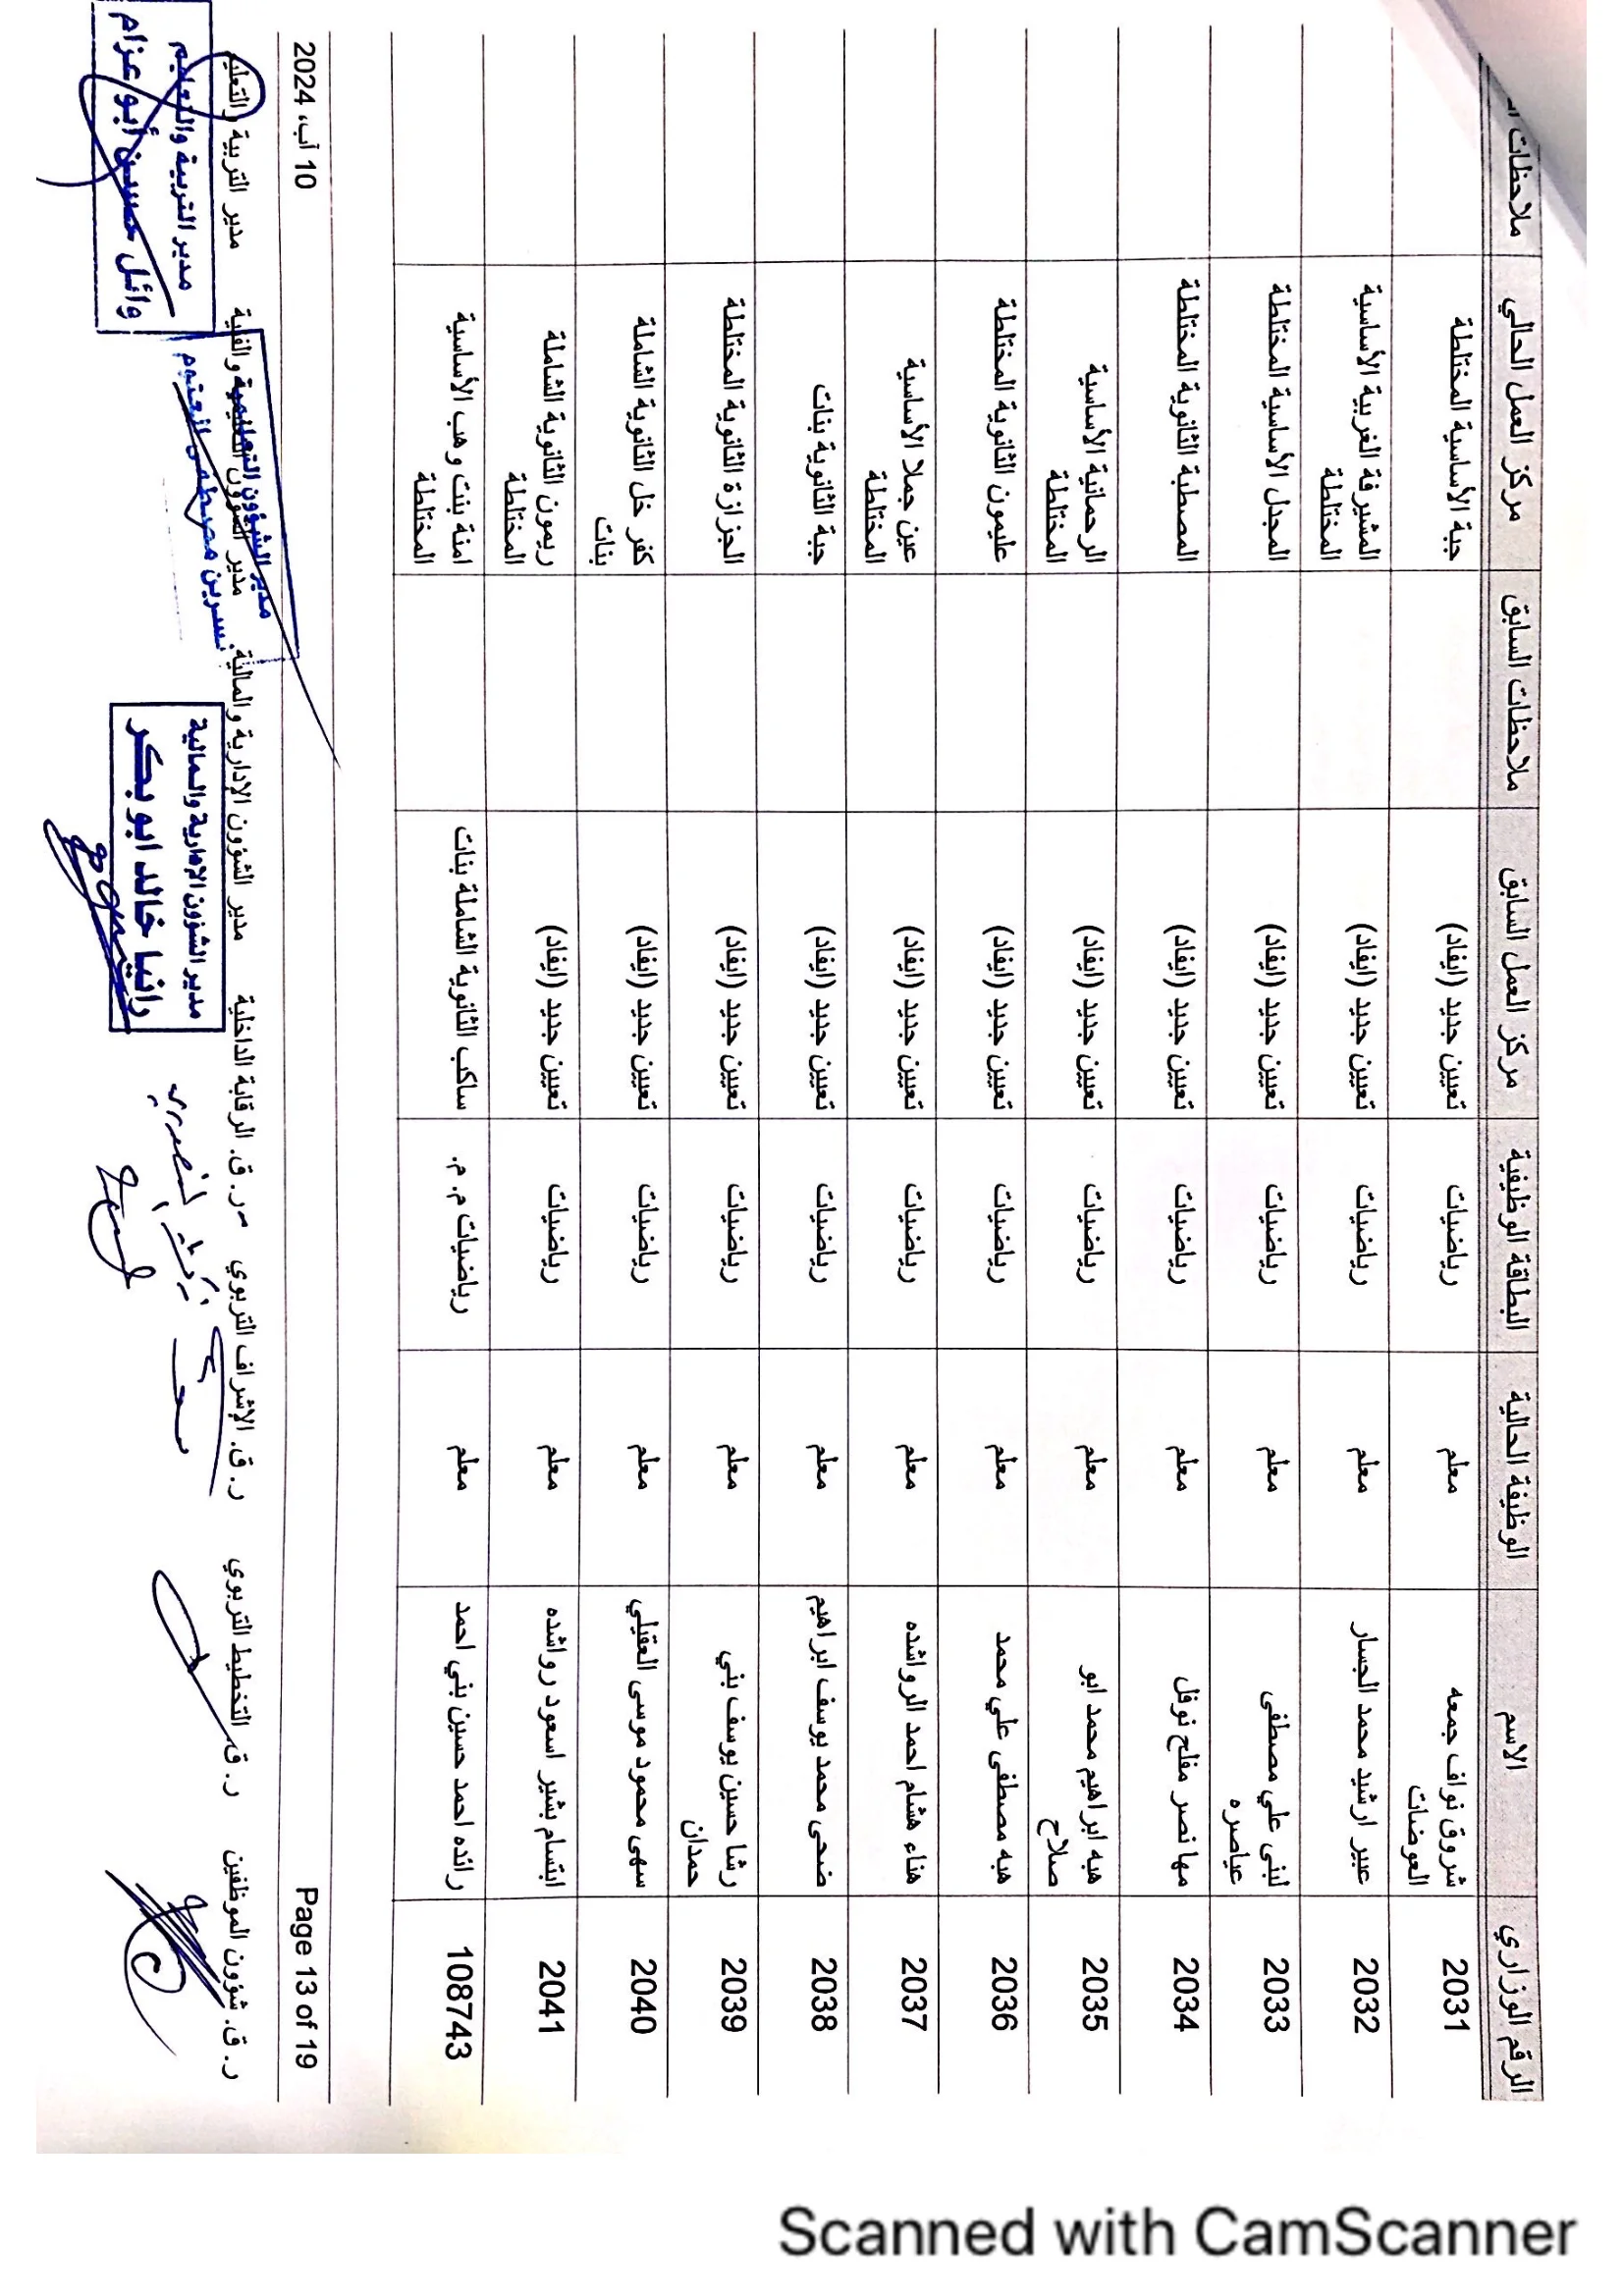 الرقم الوزاري الاسم الوظيفة الحالية البطاقة الوظيفية مركز العمل السابق ملاحظات السابق مركز العمل الحالي ملاحظات
2031 شروق نواف جمعه العوضات معلم رياضيات تعيين جديد (ايفاد) جبة الأساسية المختلطة
2032 عبير ارشيد محمد الجسار معلم رياضيات تعيين جديد (ايفاد) المشيرفة الغربية الأساسية المختلطة
2033 لبنى علي مصطفى عياصره معلم رياضيات تعيين جديد (ايفاد) المجدل الأساسية المختلطة
2034 مها نصر مفلح نوفل معلم رياضيات تعيين جديد (ايفاد) المصطبة الثانوية المختلطة
2035 هبه ابراهيم محمد ابو صلاح معلم رياضيات تعيين جديد (ايفاد) الرحمانية الأساسية المختلطة
2036 هبه مصطفى علي محمد معلم رياضيات تعيين جديد (ايفاد) عليمون الثانوية المختلطة
2037 هناء هشام احمد الرواشده معلم رياضيات تعيين جديد (ايفاد) عين جملا الأساسية المختلطة
2038 ضحى محمد يوسف ابراهيم معلم رياضيات تعيين جديد (ايفاد) جبة الثانوية بنات
2039 رشا حسين يوسف بني حمدان معلم رياضيات تعيين جديد (ايفاد) الجزازة الثانوية المختلطة
2040 سهى محمود موسى العقيلي معلم رياضيات تعيين جديد (ايفاد) كفر خل الثانوية الشاملة بنات
2041 ابتسام بشير اسعود رواشده معلم رياضيات تعيين جديد (ايفاد) ريمون الثانوية الشاملة المختلطة
108743 رائده احمد حسين بني احمد معلم رياضيات م. م. ساكب الثانوية الشاملة بنات امنة بنت وهب الأساسية المختلطة
Page 13 of 19 10 آب، 2024
ر. ق. شؤون الموظفين ر. ق. التخطيط التربوي ر. ق. الإشراف التربوي ر. ق. الرقابة الداخلية مدير الشؤون الادارية والمالية مدير الشؤون التعليمية والفنية مدير التربية والتعليم
مدير الشؤون الإدارية والمالية
رانيا خالد ابو بكر
مدير الشؤون التعليمية
نسرين مصطفى العتوم
مدير التربية والتعليم
وائل حسين أبو عزام
Scanned with CamScanner